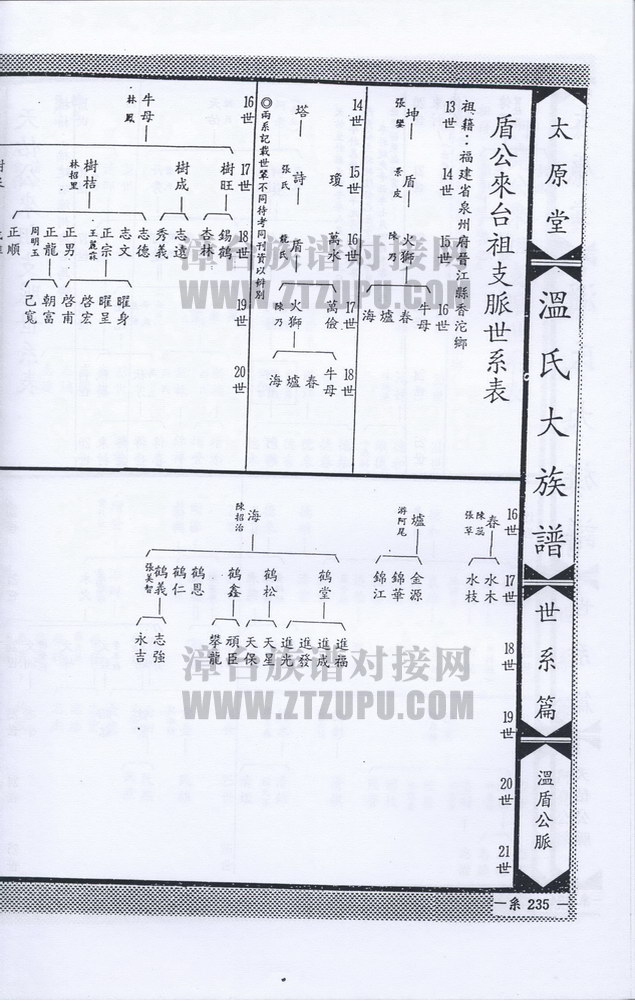 太原堂
溫氏大族譜
世系篇
溫盾公脈
系 235
盾公來台祖支脈世系表
祖籍：福建省泉州府晉江縣香沱鄉
13世
14世
15世
16世
坤
張
盾
火獅
陳乃
牛母
春
墟
海
14世
15世
16世
17世
18世
瓊
萬水
萬儉
塔
詩
張氏
盾
火獅
陳乃
牛母
春
墟
海
◎兩系記載世第不同待考同刊資以辨別
16世
17世
18世
19世
20世
牛母
林鳳
樹旺
樹成
樹桔
林招里
錫鶴
杏林
志遠
秀義
志德
志文
正宗
王麗霖
正男
正龍
周明玉
正順
曜身
曜呈
啓宏
啓甫
朝富
己寬
16世
17世
18世
19世
20世
21世
春
陳蕊
張草
水木
水枝
墟
游阿尾
金源
錦華
錦江
海
陳招治
鶴堂
鶴松
鶴鑫
鶴恩
鶴仁
鶴義
張美智
進福
進成
進發
進光
天星
天保
頑臣
攀龍
志強
永吉
漳台族谱对接网
WWW.ZTZUPU.COM
漳台族谱对接网
WWW.ZTZUPU.COM